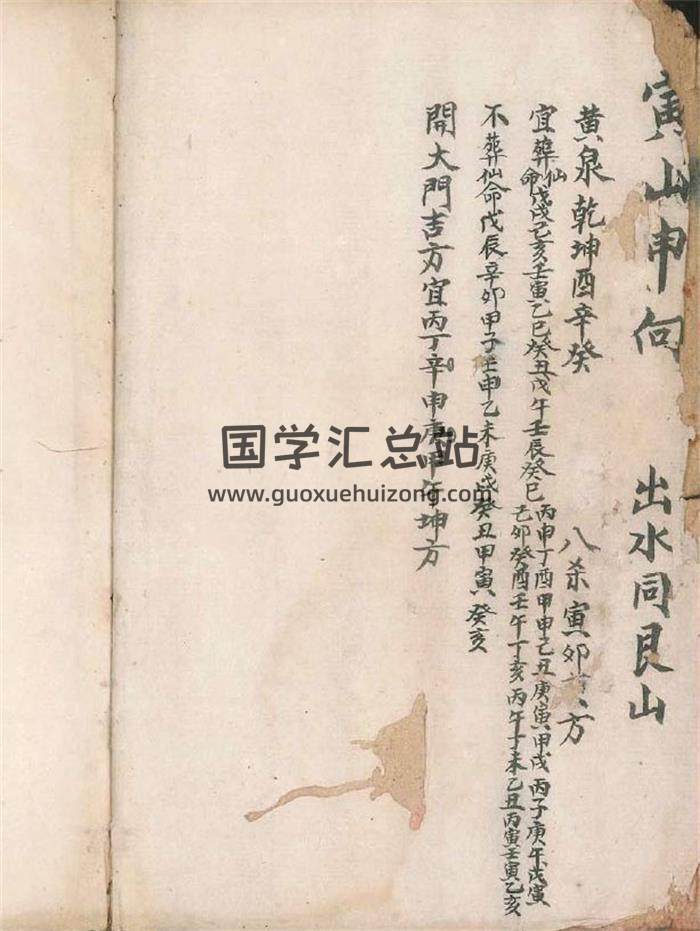 寅山申向 出水同艮山
黄泉乾坤酉辛癸 八杀寅卯 方
宜葬仙命戊戌己亥壬寅乙巳癸丑戊午壬辰癸巳 丙申丁酉甲申乙丑庚寅甲戌丙子庚午戊寅
己卯癸酉壬午丁亥丙午丁未乙丑丙寅壬寅乙亥
不葬仙命戊辰辛卯甲子壬申乙未庚戌癸丑甲寅癸亥
開大門吉方宜丙丁辛申庚 午坤方
国学汇总站
www.guoxuehuizong.com